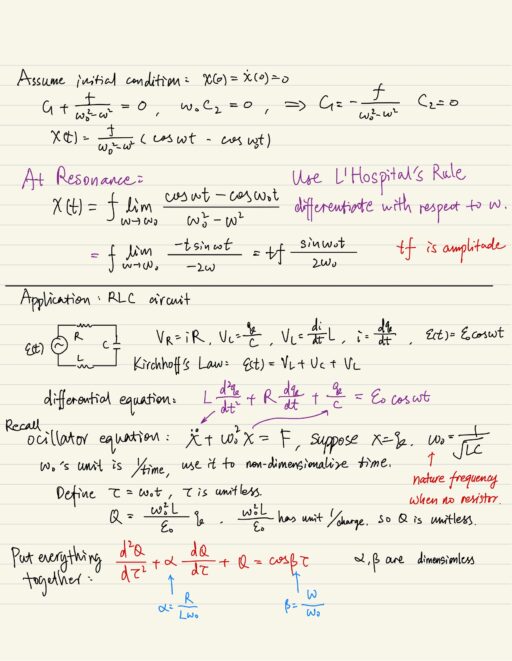 Assume initial condition: x(0) = ẋ(0) = 0
C₁ + f/(ω₀²-ω²) = 0, ω₀C₂ = 0, ⟹ C₁ = - f/(ω₀²-ω²) C₂ = 0
x(t) = f/(ω₀²-ω²) (cosωt - cosω₀t)
At Resonance: Use L'Hospital's Rule
x(t) = f lim ω→ω₀ (cosωt - cosω₀t)/(ω₀² - ω²) differentiate with respect to ω.
= f lim ω→ω₀ (-t sinωt)/(-2ω) = tf sinω₀t/(2ω₀) tf is amplitude
Application: RLC circuit
ε(t) R C L V_R = iR, V_C = q/C, V_L = di/dt L, i = dq/dt, ε(t) = ε₀cosωt
Kirchhoff's Law: ε(t) = V_L + V_C + V_L
differential equation: L d²q/dt² + R dq/dt + q/C = ε₀ cosωt
Recall
ocillator equation: ẍ + ω₀²x = F, suppose x=q. ω₀ = 1/√LC
ω₀'s unit is 1/time, use it to non-dimensionalize time.
nature frequency
when no resistor.
Define τ = ω₀t, τ is unitless.
Q = ω₀²L/ε₀ q. ω₀²L/ε₀ has unit 1/charge. so Q is unitless.
Put everything together: d²Q/dτ² + α dQ/dτ + Q = cosβτ α, β are dimensionless
α = R/(Lω₀) β = ω/ω₀